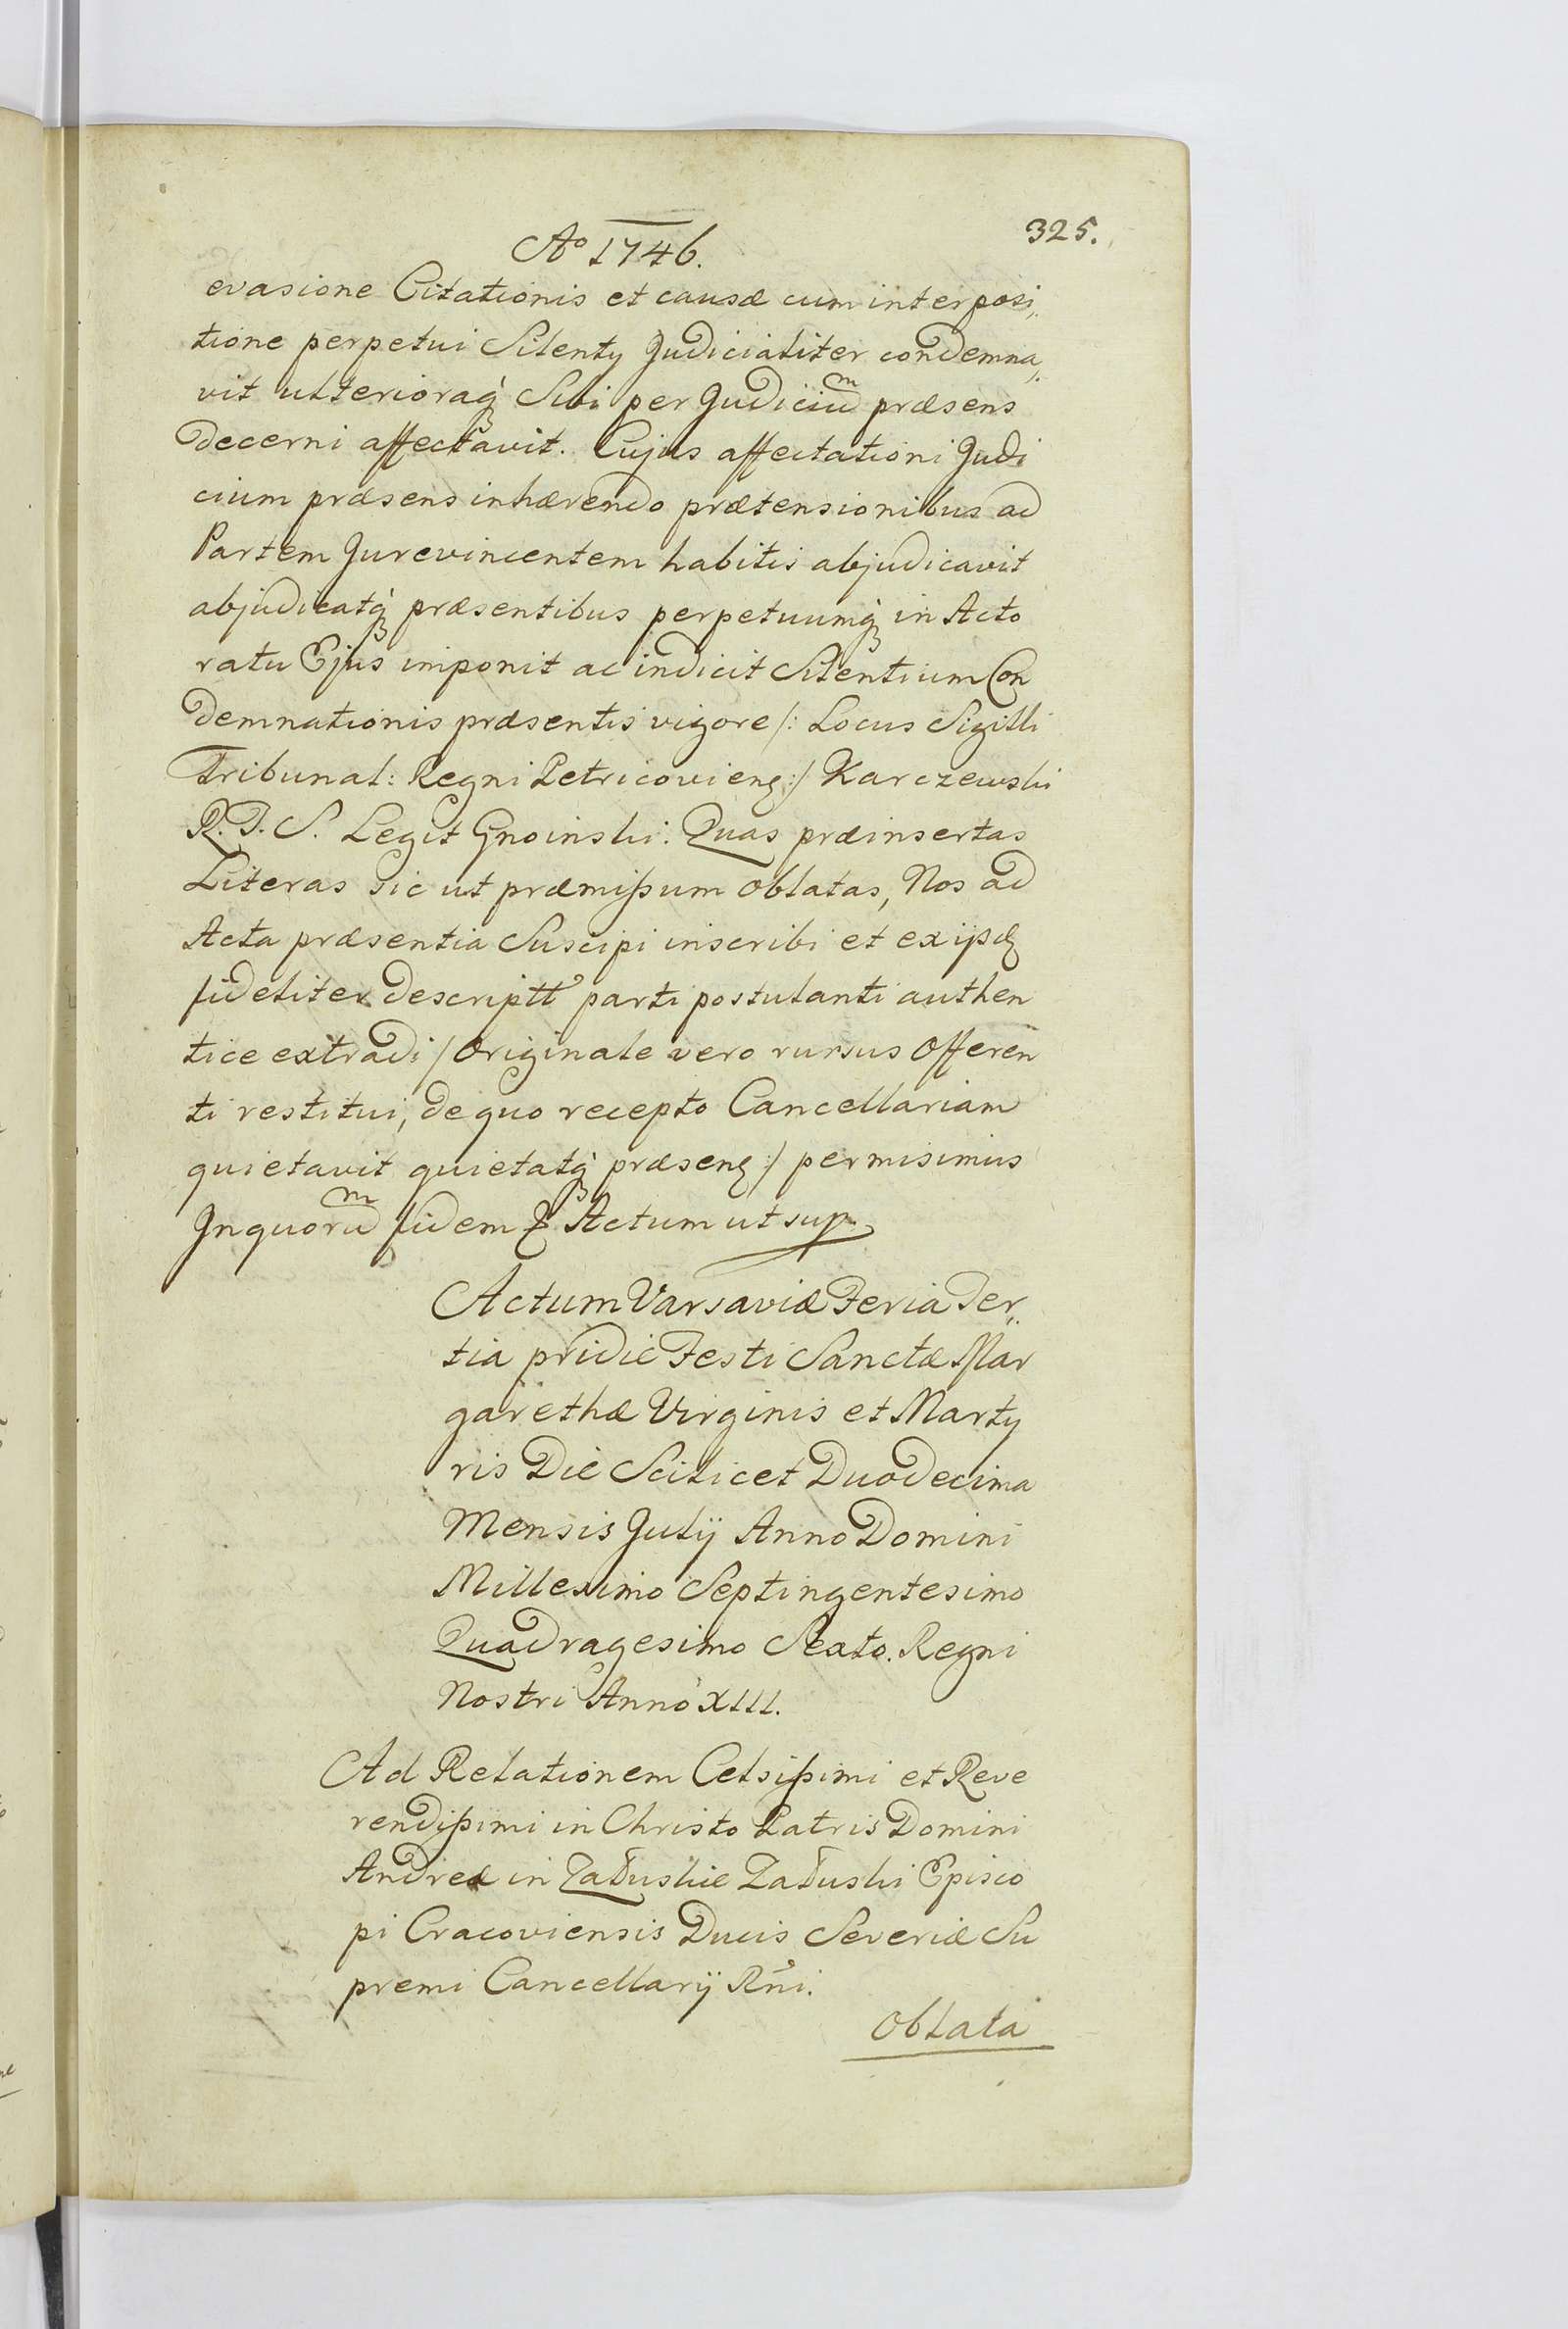 Aº 1746.
325.
evasione Citationis et causæ cum interposi„
tione perpetui Silenty Judicialiter condemna„
vit ulterioraq́ꝫ Sibi per Judiciũm præsens
decerni affectavit. Cujus affectationi Judi
cium præsens inhærendo prætensionibus ad
Partem Jurevincentem habitis abjudicavit
abjudicatq́ꝫ præsentibus perpetuumq́ꝫ in Acto
ratu Ejus imponit ac indicit Silentium Con
demnationis præsentis vigore /: Locus Sigilli
Tribunal: Regni Petricovienꝫ :/ Karczewski
R. T. S. Legit Gnoinski. Quas præinsertas
Literas sic ut præmissum oblatas, Nos ad
Acta præsentia Suscipi inscribi et ex ipsꝫ
fideliter descriptt parti postulanti authen
tice extradi / Originale vero rursus Offeren
ti restitui, de quo recepto Cancellariam
quietavit quietatq́ꝫ præsenꝫ :/ permisimus
In quorũm fidem ꝛc Actum ut sup.
Actum Varsaviæ Feria Ter„
tia pridie Festi Sanctæ Mar
garethæ Virginis et Marty
ris Die Scilicet Duodecima
Mensis Julÿ Anno Domini
Millesimo Septingentesimo
Quadragesimo Sexto. Regni
Nostri Anno XIII.
Ad Relationem Celsissimi et Reve
rendissimi in Christo Patris Domini
Andreæ in Załuskie Załuski Episco
pi Cracoviensis Ducis Severiæ Su
premi Cancellarÿ Rñi.
Oblata